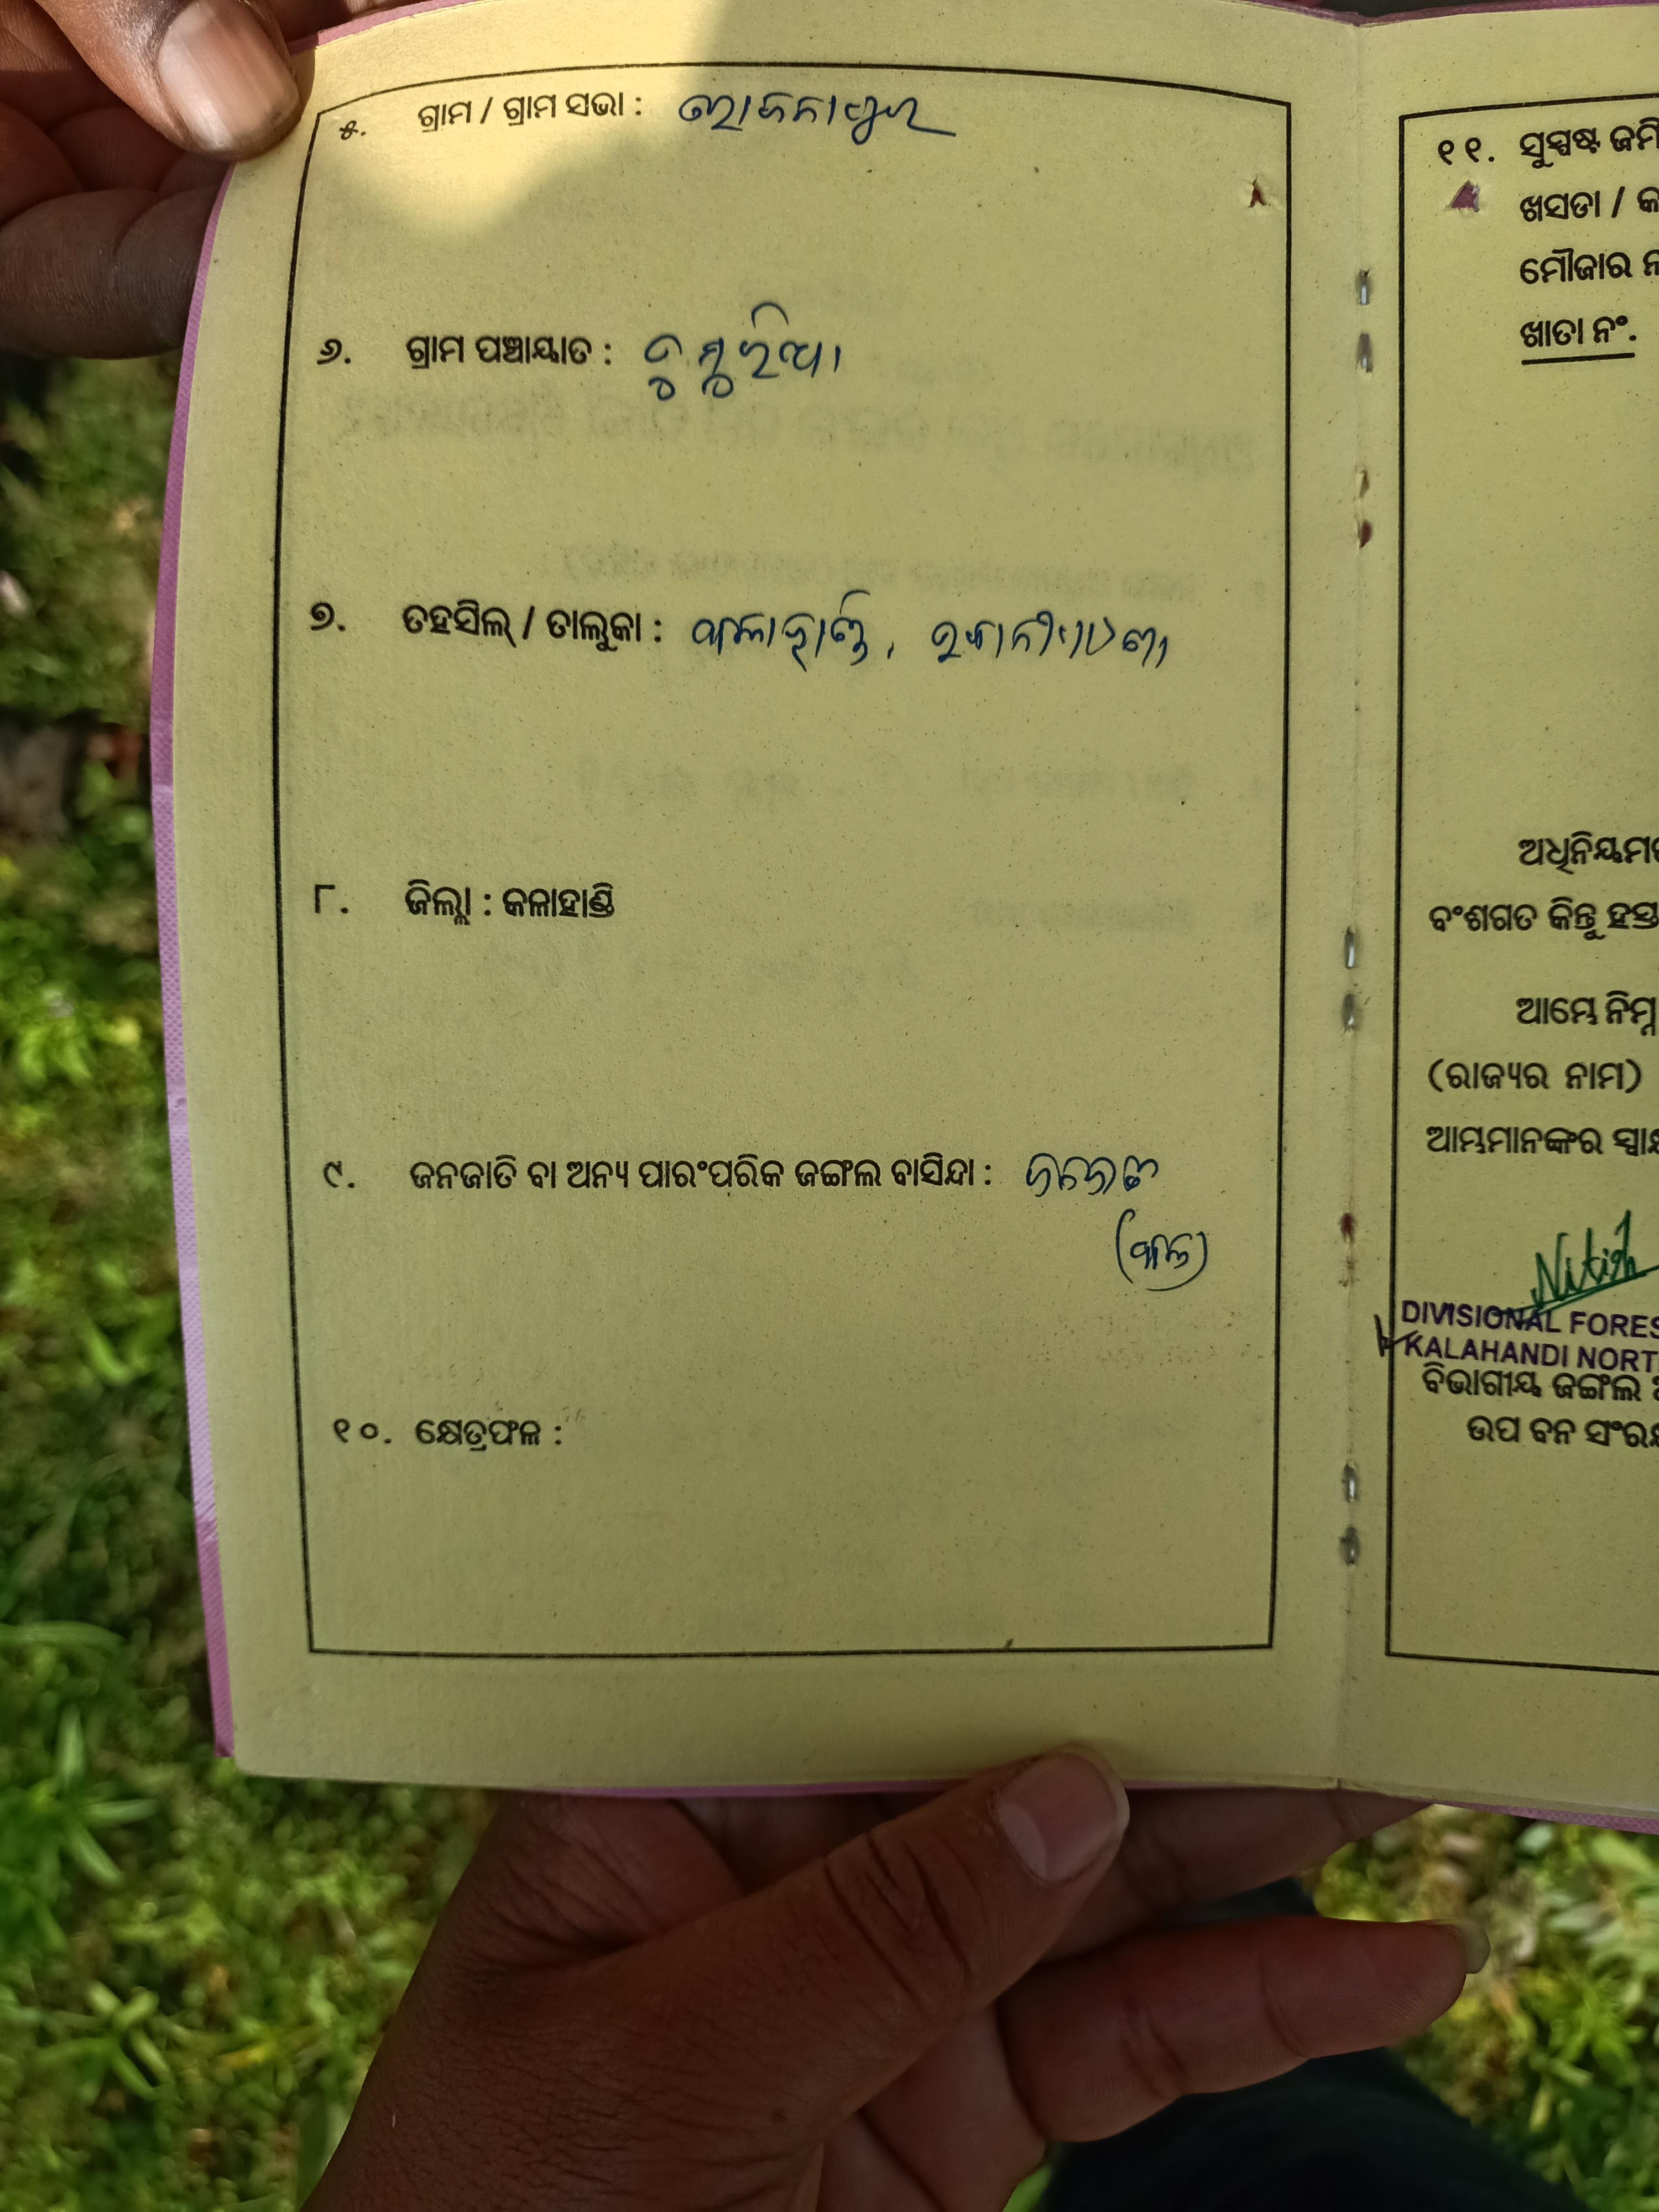 ୫. ଗ୍ରାମ / ଗ୍ରାମ ସଭା :
୬. ଗ୍ରାମ ପଞ୍ଚାୟାତ : ଡୁମୁରିଆ
୭. ତହସିଲ୍ / ତାଲୁକା : କଳାହାଣ୍ଡି, ଭବାନୀପାଟଣା
୮. ଜିଲ୍ଲା : କଳାହାଣ୍ଡି
୯. ଜନଜାତି ବା ଅନ୍ୟ ପାରଂପରିକ ଜଙ୍ଗଲ ବାସିନ୍ଦା :
୧୦. କ୍ଷେତ୍ରଫଳ :
୧୧. ସୁସ୍ପଷ୍ଟ ଜମି
ଖସଡା /
ମୌଜାର
ଖାତା ନଂ.
ଅଧିନିୟମ
ବଂଶଗତ କିନ୍ତୁ ହସ୍ତ
ଆମ୍ଭେ ନିମ୍ନ
(ରାଜ୍ୟର ନାମ)
ଆମ୍ଭମାନଙ୍କର ସ୍ୱା
Nitish
DIVISIONAL FORES
KALAHANDI NORT
ବିଭାଗୀୟ ଜଙ୍ଗଲ
ଉପ ବନ ସଂର